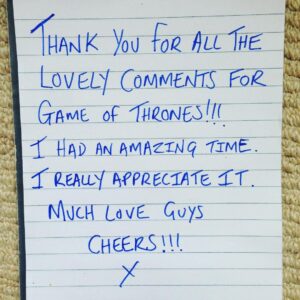 THANK YOU FOR ALL THE
LOVELY COMMENTS FOR
GAME OF THRONES!!!
I HAD AN AMAZING TIME.
I REALLY APPRECIATE IT.
MUCH LOVE GUYS
CHEERS!!!
X